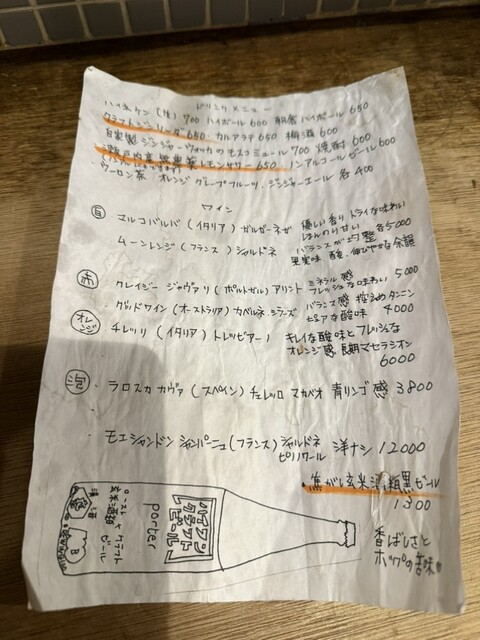 ドリンクメニュー
ハイネケン(生) 700 ハイボール 600 角 ハイボール 650
クラフトジンソーダ 650 カルアラテ 650 梅酒 600
自家製ジンジャーウォッカのモスコミュール 700 焼酎 600
瀬戸内 レモンサワー 650 ノンアルコールビール 600
ウーロン茶 オレンジ グレープフルーツ. ジンジャーエール 各400
ワイン
白 マルコバルバ (イタリア) ガルガーネガ 優しい香り ドライな味わい
ほんのり甘い
ムーンレンジ (フランス) シャルドネ バランスが 整 各5000
果実味 酸 伸びやかな余韻
赤 クレイジー ジャヴァリ (ポルトガル) アリント ミネラル感 5000
フレッシュな味わい
グッドワイン (オーストラリア) カベルネ.シラーズ バランス感 控えめタンニン
ピュアな酸味 4000
オレンジ チレッリ (イタリア) トレッビアーノ キレイな酸味とフレッシュな
オレンジ感 長期マセラシオン
6000
泡 ラロスカ カヴァ (スペイン) チェレッロ マカベオ 青リンゴ感 3800
モエシャンドン シャンパーニュ (フランス) シャルドネ 洋ナシ 12000
ピノノワール
焦がし玄米 黒ビール
1300
香ばしさと
ホップの苦味
porter
クラフト
ビール